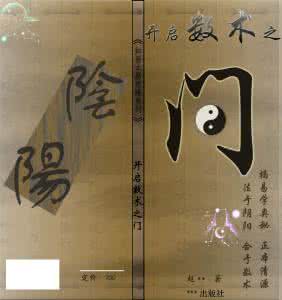 开启数术之
门
揭易学奥秘 正本清源
法于阴阳 合于数术
赵** 著
***出版社
开启数术之门
陰陽
定价